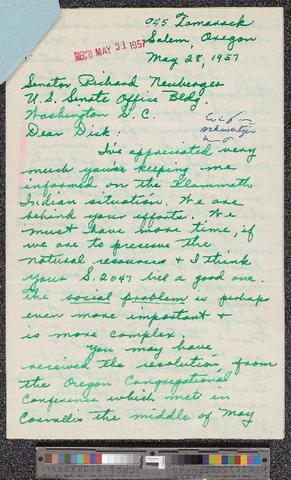 945 Tamarack
Salem, Oregon
REC'D MAY 31 1957
May 28, 1957
Senator Richard Neuberger
U.S. Senate Office Bldg.
Washington D.C.
Dear Dick:
I've appreciated very
much you're keeping me
informed on the Klammath
Indian situation. We are
behind your efforts. We
must have more time, if
we are to preserve the
natural resources & I think
your S. 2047 bill a good one.
The social problem is perhaps
even more important &
is more complex.
You may have
received the resolution from
the Oregon Congregational
Conference which met in
Corvallis the middle of May